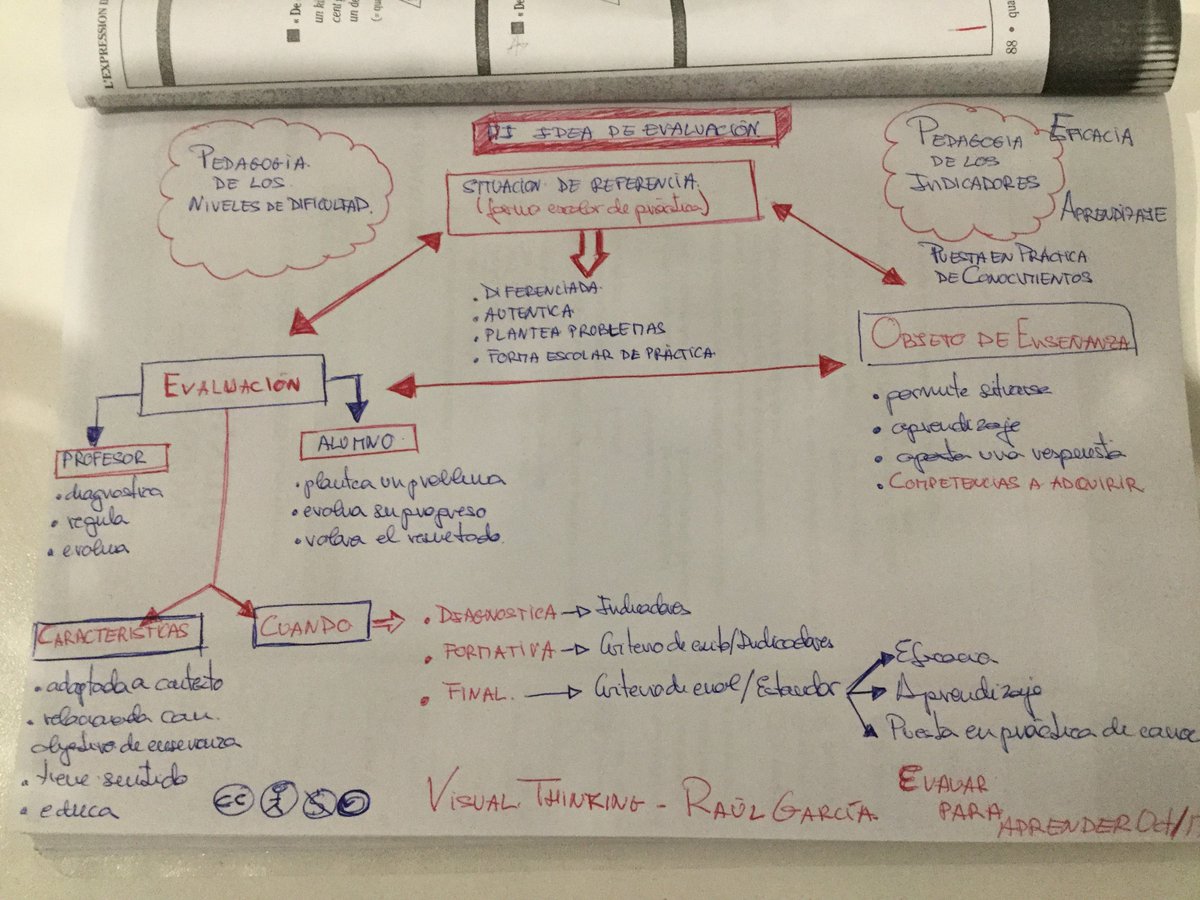 L'EXPRESSION
« De
un k
cent
un de
(« qu
« De
88 • qua
MI IDEA DE EVALUACIÓN
PEDAGOGIA
DE LOS
NIVELES DE DIFICULTAD.
SITUACION DE REFERENCIA
(forma escolar de práctica)
PEDAGOGIA
DE LOS
INDICADORES
EFICACIA
APRENDIZAJE
PUESTA EN PRÁCTICA
DE CONOCIMIENTOS
. DIFERENCIADA.
. AUTENTICA
. PLANTEA PROBLEMAS
. FORMA ESCOLAR DE PRÁCTICA
OBJETO DE ENSEÑANZA
• permite situarse
• aprendizaje
• aporta una respuesta
• COMPETENCIAS A ADQUIRIR
EVALUACIÓN
PROFESOR
• diagnostica
• regula
• evalua
ALUMNO
• plantea un problema
• evalua su progreso
• valora el resultado.
CARACTERÍSTICAS
• adaptada a contexto
• relacionada con
objetivo de enseñanza
• tiene sentido
• educa
CUANDO
• DIAGNOSTICA → Indicadores
• FORMATIVA → Criterio de /Indicadores
• FINAL. → Criterio de eval/Estandar
Eficacia
Aprendizaje
Puesta en práctica de conoc
cc
VISUAL THINKING - RAÚL GARCÍA
EVALUAR
PARA
APRENDER Oct/1